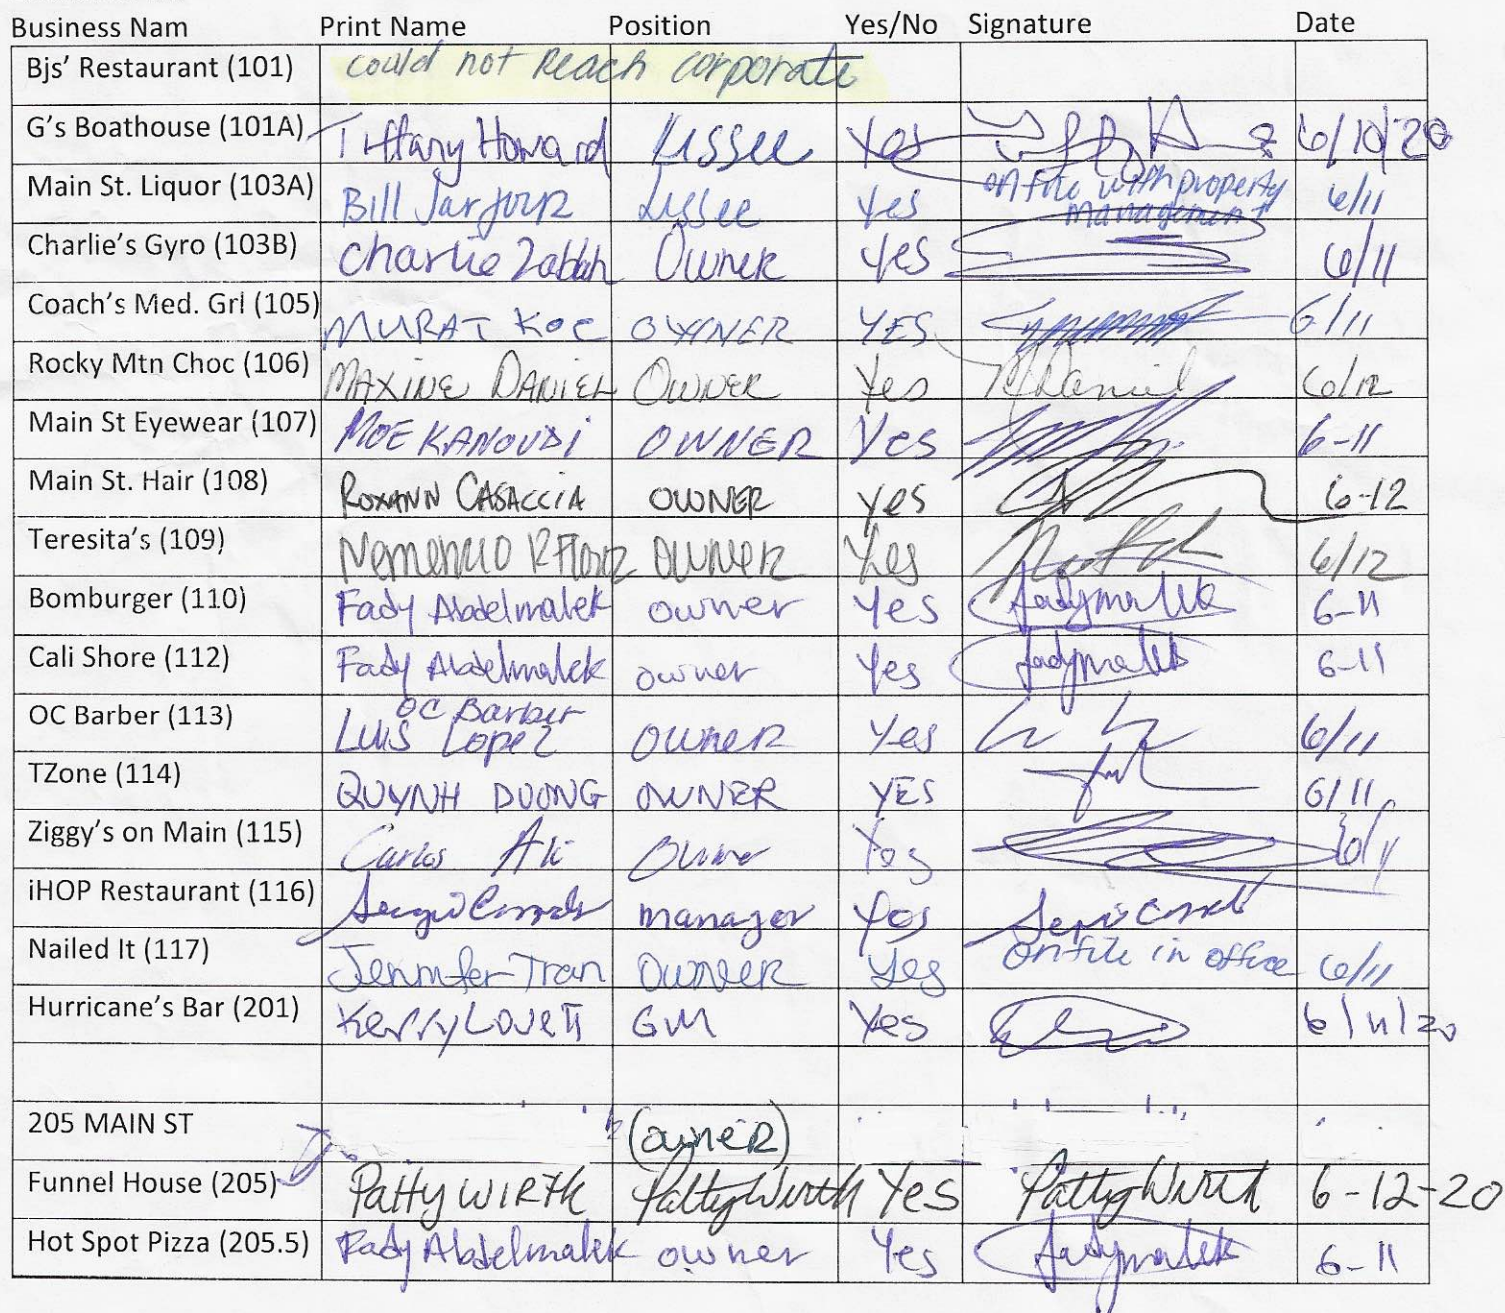 Business Nam Print Name Position Yes/No Signature Date
Bjs' Restaurant (101) could not Reach corporate
G's Boathouse (101A) Tiffany Howard Lessee Yes 6/10/20
Main St. Liquor (103A) Bill Jarjour Lessee Yes on file with property management 6/11
Charlie's Gyro (103B) Charlie Zabbah Owner Yes 6/11
Coach's Med. Grl (105) MURAT KOC OWNER YES 6/11
Rocky Mtn Choc (106) MAXINE DANIEL OWNER Yes MDaniel 6/12
Main St Eyewear (107) MOE KANOUDI OWNER Yes 6-11
Main St. Hair (108) ROXANN CASACCIA OWNER yes 6-12
Teresita's (109) OWNER Yes 6/12
Bomburger (110) Fady Abdelmalek owner Yes fadymalek 6-11
Cali Shore (112) Fady Abdelmalek owner Yes fadymalek 6-11
OC Barber (113) OC Barber
Luis Lopez OWNER Yes 6/11
TZone (114) QUYNH DUONG OWNER YES 6/11
Ziggy's on Main (115) Carlos Owner Yes
iHOP Restaurant (116) manager Yes
Nailed It (117) Jennifer Tran OWNER Yes On file in office 6/11
Hurricane's Bar (201) Kerry Lovett GM Yes 6/11/20
205 MAIN ST (owner)
Funnel House (205) Patty WIRTH Patty Wirth Yes Patty Wirth 6-12-20
Hot Spot Pizza (205.5) Fady Abdelmalek owner Yes fadymalek 6-11